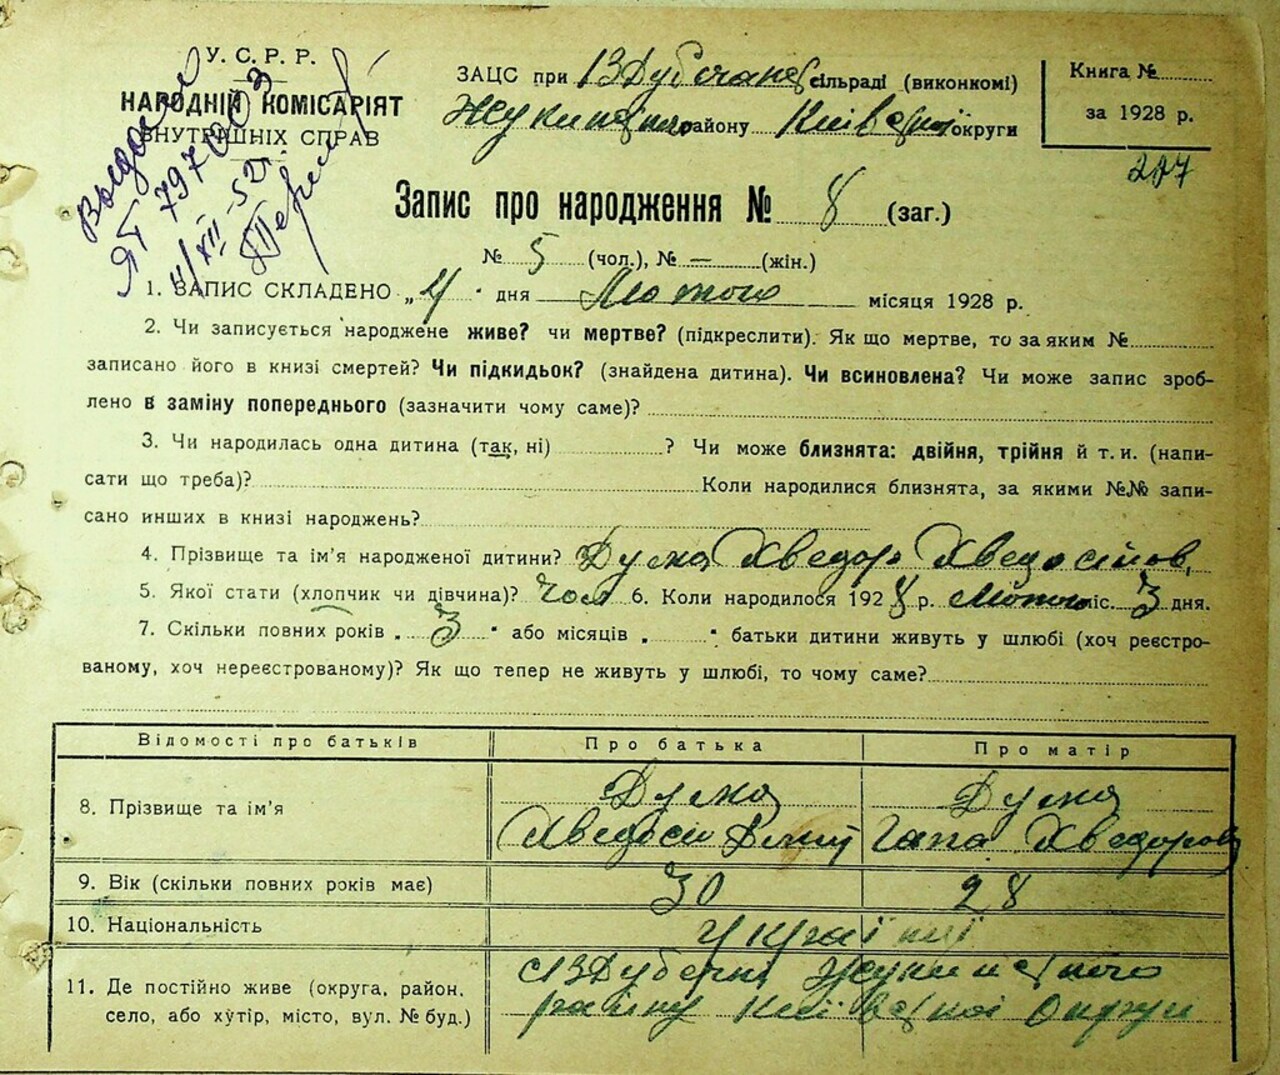 У. С. Р. Р.
НАРОДНІЙ КОМІСАРІЯТ
ВНУТРІШНІХ СПРАВ
ЗАЦС при В Дубечанс. сільраді (виконкомі)
Жукинського району Київської округи
Книга №
за 1928 р.
207
ЯТ 797003
XII-52
Запис про народження № 8 (заг.)
№ 5 (чол.), № — (жін.)
1. ЗАПИС СКЛАДЕНО „4" дня Лютого місяця 1928 р.
2. Чи записується народжене живе? чи мертве? (підкреслити). Як що мертве, то за яким №
записано його в книзі смертей? Чи підкидьок? (знайдена дитина). Чи всиновлена? Чи може запис зроб-
лено в заміну попереднього (зазначити чому саме)?
3. Чи народилась одна дитина (так, ні) ? Чи може близнята: двійня, трійня й т. и. (напи-
сати що треба)? Коли народилися близнята, за якими №№ запи-
сано инших в книзі народжень?
4. Прізвище та ім'я народженої дитини? Дума Хведор Хведосійов.
5. Якої стати (хлопчик чи дівчина)? Чол 6. Коли народилося 1928 р. Лютого міс. 3 дня.
7. Скільки повних років „ 3 " або місяців „ " батьки дитини живуть у шлюбі (хоч реєстро-
ваному, хоч нереєстрованому)? Як що тепер не живуть у шлюбі, то чому саме?
Відомості про батьків Про батька Про матір
8. Прізвище та ім'я Дума Дума
Хведосій Гапа Хведоровн
9. Вік (скільки повних років має) 30 28
10. Національність Україн
11. Де постійно живе (округа, район, с В Дубечні Жукинського
село, або хутір, місто, вул. № буд.) району Київської Округи